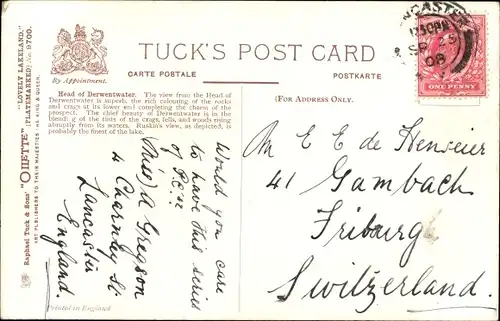 TUCK'S POST CARD
CARTE POSTALE
POSTKARTE
By Appointment.
(FOR ADDRESS ONLY.)
Head of Derwentwater. The view from the Head of
Derwentwater is superb, the rich colouring of the rocks
and crags at its lower end completing the charm of the
prospect. The chief beauty of Derwentwater is in the
blending of the tints of the crags, fells, and woods rising
abruptly from its waters. Ruskin's view, as depicted, is
probably the finest of the lake.
Raphael Tuck & Sons' "OILETTE" "LOVELY LAKELAND."
[PLATEMARKED] No. 9700.
ART PUBLISHERS TO THEIR MAJESTIES THE KING & QUEEN.
Would you care
to have this series
of P.C.s?
(Miss) A Gregson
4 Charnley St.
Lancaster
England.
Printed in England
SP 25
08
ONE PENNY
M E E de Henseler
41 Gambach
Friburg
Switzerland.